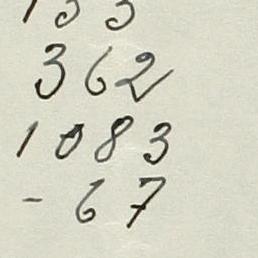 362
1083
- 67